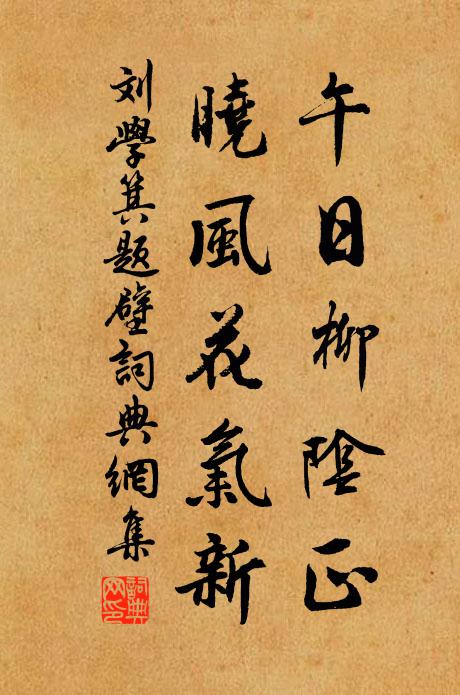 午日柳陰正
曉風花氣新
刘學箕題壁詞典網集
詞典网印